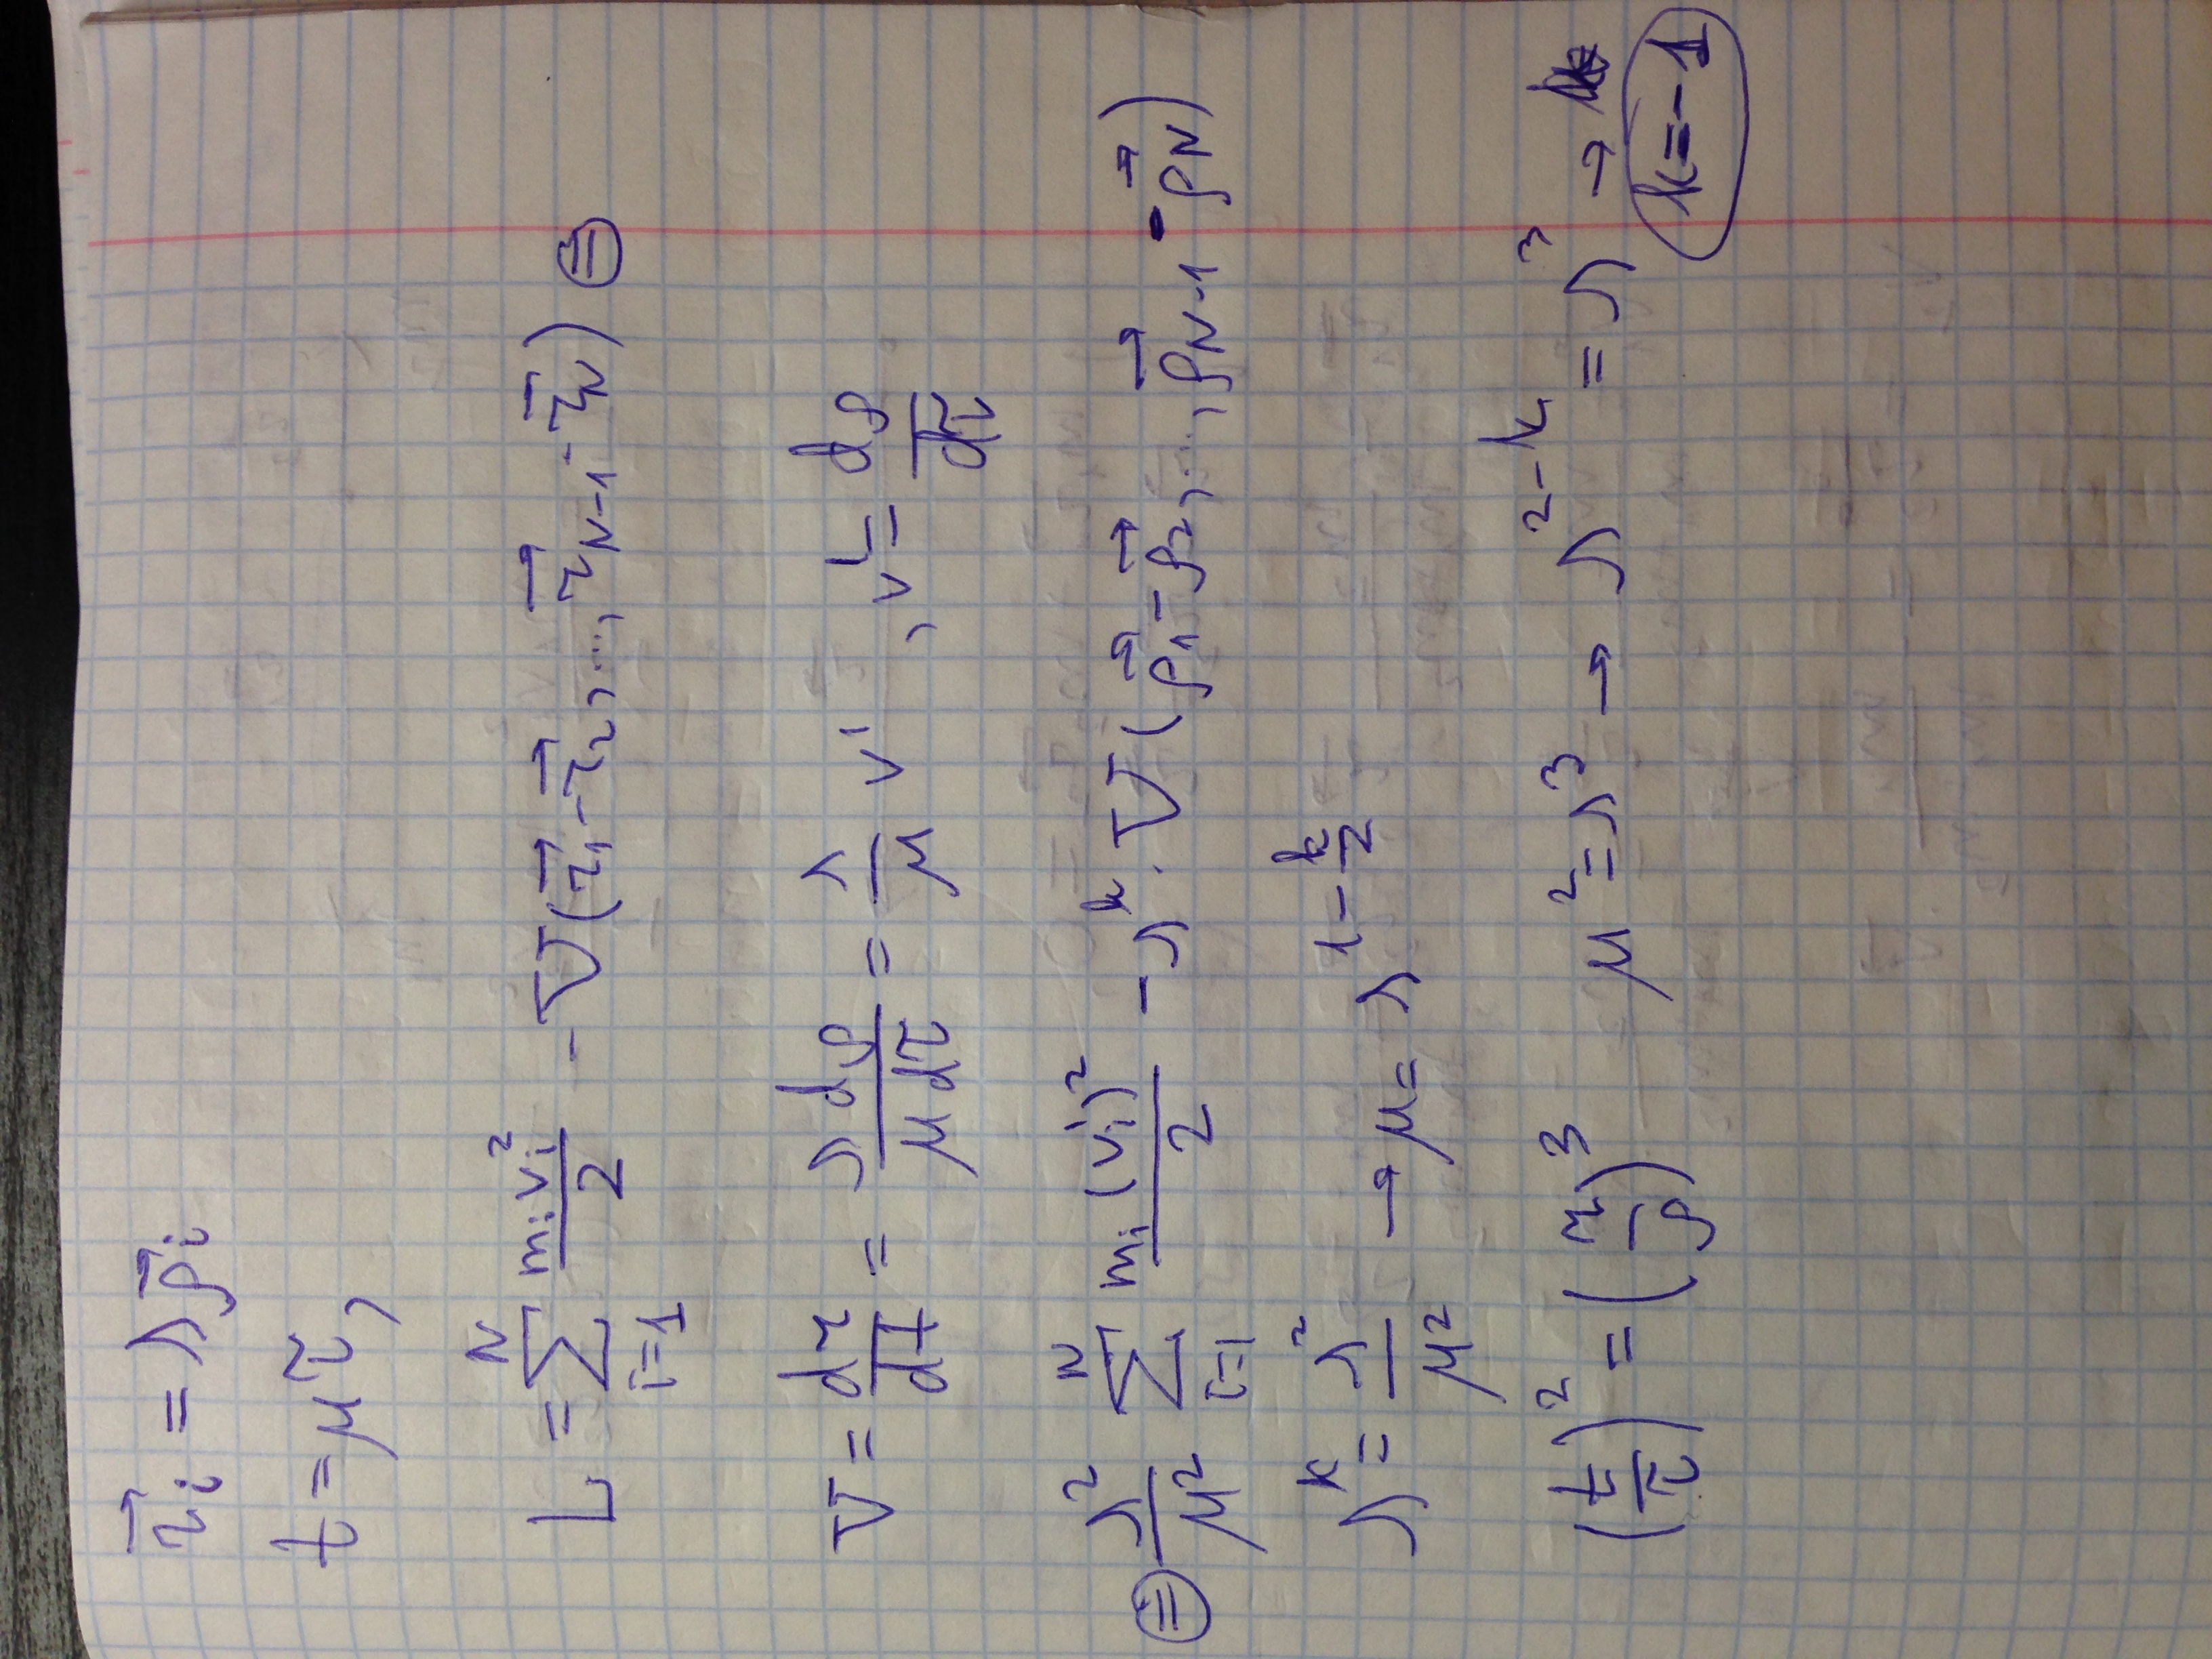 r⃗ᵢ = λρ⃗ᵢ
t = μτ,
L = ∑_{i=1}^{N} mᵢvᵢ²/2 - U(r⃗₁ - r⃗₂, ..., r⃗_{N-1} - r⃗_N) ⊜
v = dr/dt = λdρ/μdτ = λ/μ v' , v' = dρ/dτ
⊜ λ²/μ² ∑_{i=1}^{N} mᵢ(vᵢ')²/2 - λᵏ · U(ρ⃗₁ - ρ⃗₂, ..., ρ⃗_{N-1} - ρ⃗_N)
λᵏ = λ²/μ² → μ = λ^{1 - k/2}
(t/τ)² = (r/ρ)³ μ² = λ³ → λ^{2-k} = λ³ →
k = -1